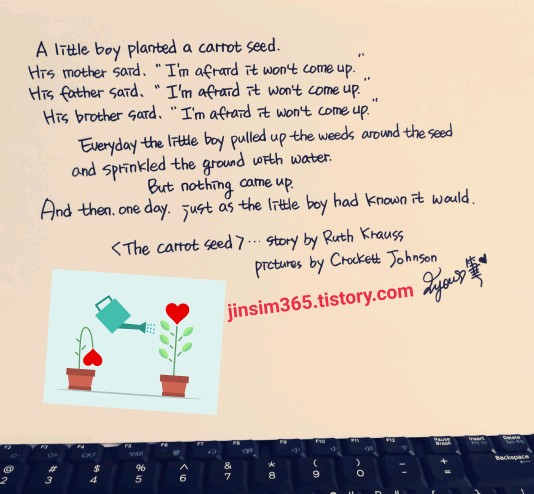 A little boy planted a carrot seed.
His mother said. "I'm afraid it won't come up."
His father said. "I'm afraid it won't come up."
His brother said. "I'm afraid it won't come up."
Everyday the little boy pulled up the weeds around the seed
and sprinkled the ground with water.
But nothing came up.
And then. one day. just as the little boy had known it would.
<The carrot seed> ... story by Ruth Krauss
pictures by Crockett Johnson
jinsim365.tistory.com
F7 F8 F9 F10 F11 F12 Pause Break Insert Delete
@ # $ % ^ & * ( ) - + Backspace
2 3 4 5 6 7 8 9 0 - =